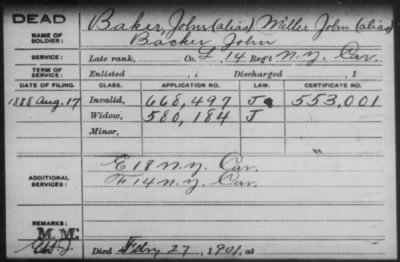 DEAD
NAME OF SOLDIER: Baker, John (alias) Miller John (alias)
Backer John
SERVICE: Late rank, Co. L 14 Reg't N.Y. Cav.
TERM OF SERVICE: Enlisted , 1 Discharged , 1
DATE OF FILING. CLASS. APPLICATION NO. LAW. CERTIFICATE NO.
1888 Aug. 17 Invalid, 668,497 J 553,001
Widow, 580,184 J
Minor,
ADDITIONAL SERVICES: E 18 N.Y. Cav.
F 14 N.Y. Cav.
REMARKS:
M.M.
Died Febry 27, 1901, at